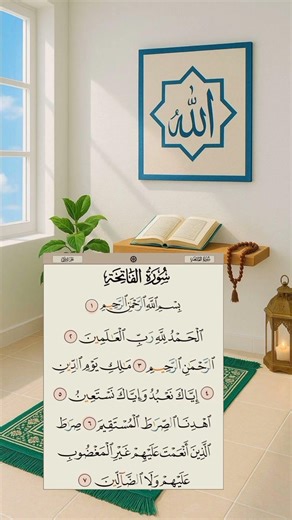 الله
سُورَةُ الفَاتِحَةِ
بِسْمِ اللَّهِ الرَّحْمَٰنِ الرَّحِيمِ ١
الْحَمْدُ لِلَّهِ رَبِّ الْعَالَمِينَ ٢
الرَّحْمَٰنِ الرَّحِيمِ ٣ مَالِكِ يَوْمِ الدِّينِ
٤ إِيَّاكَ نَعْبُدُ وَإِيَّاكَ نَسْتَعِينُ ٥
اهْدِنَا الصِّرَاطَ الْمُسْتَقِيمَ ٦ صِرَاطَ
الَّذِينَ أَنْعَمْتَ عَلَيْهِمْ غَيْرِ الْمَغْضُوبِ
عَلَيْهِمْ وَلَا الضَّالِّينَ ٧